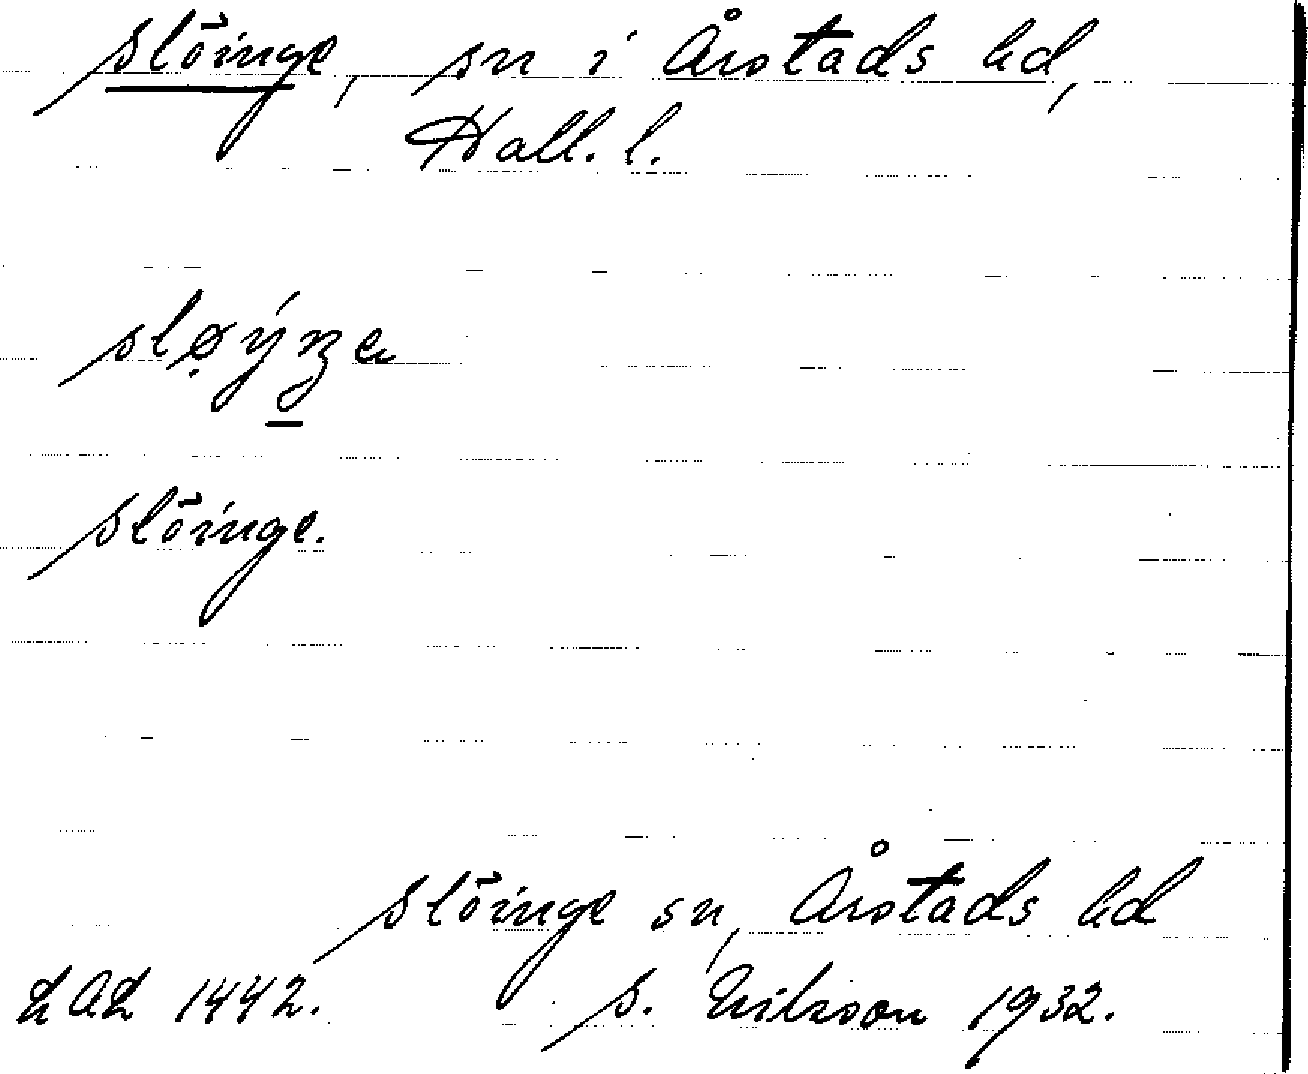 Slöinge, sn i Årstads hd,
Hall. l.
Slöinge.
Slöinge sn, Årstads hd
LAL 1442. S. Nilsson 1932.